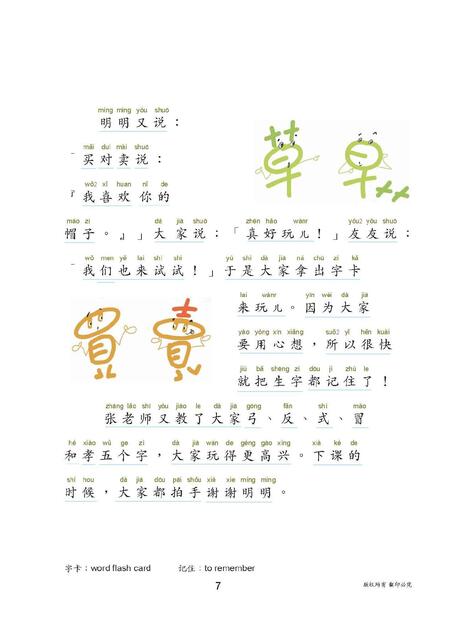 míng míng yòu shuō
明明又说：
mǎi duì mài shuō
「买对卖说：
wǒ2 xǐ huan nǐ de
『我喜欢你的
草 早
mào zi dà jiā shuō zhēn hǎo wánr yǒu2 yǒu shuō
帽子。』」大家说：「真好玩儿！」友友说：
wǒ men yě lai shì shi yú shì dà jiā ná chū zì kǎ
「我们也来试试！」于是大家拿出字卡
買 賣
lai wánr yīn wèi dà jiā
来玩儿。因为大家
yào yòng xīn xiǎng suǒ2 yǐ hěn kuài
要用心想，所以很快
jiù bǎ shēng zì dōu jì zhù le
就把生字都记住了！
zhāng lǎo shī yòu jiāo le dà jiā gōng fǎn shì mào
张老师又教了大家弓、反、式、冒
hé xiào wǔ ge zì dà jiā wán de gèng gāo xìng xià kè de
和孝五个字，大家玩得更高兴。下课的
shí hou dà jiā dōu pāi shǒu xiè xie míng míng
时候，大家都拍手谢谢明明。
字卡：word flash card 记住：to remember
7
版权所有 翻印必究